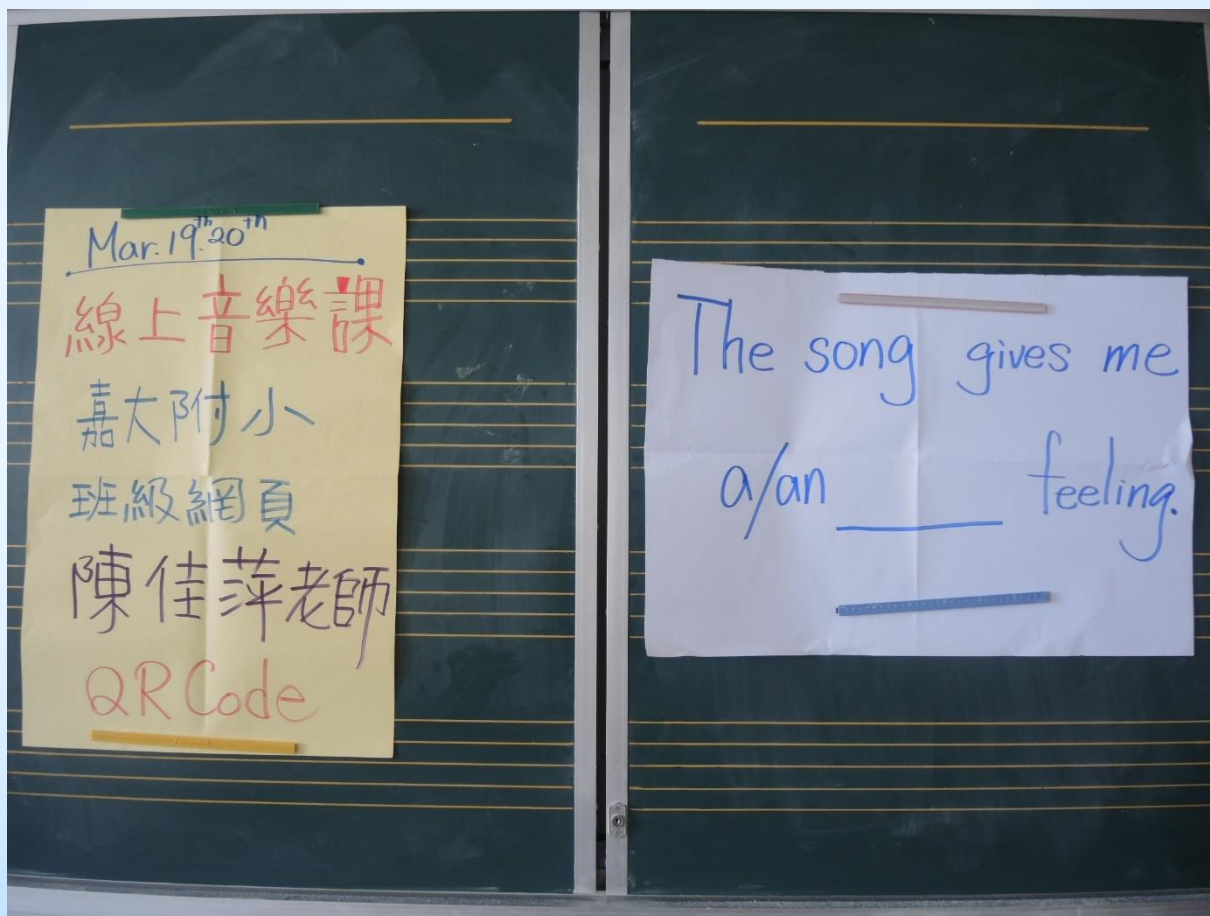 Mar. 19th. 20th
線上音樂課
嘉大附小
班級網頁
陳佳萍老師
QR Code
The song gives me
a/an ______ feeling.